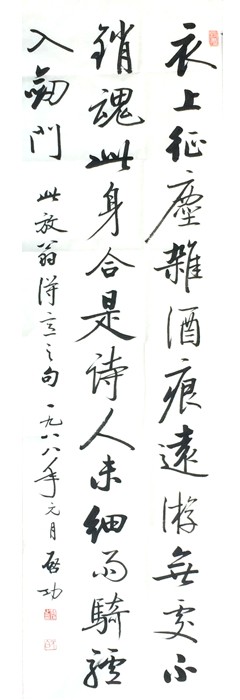 衣上征塵雜酒痕遠游無處不
銷魂此身合是詩人未細雨騎驢
入劒門
此放翁得意之句一九八八年元月啟功